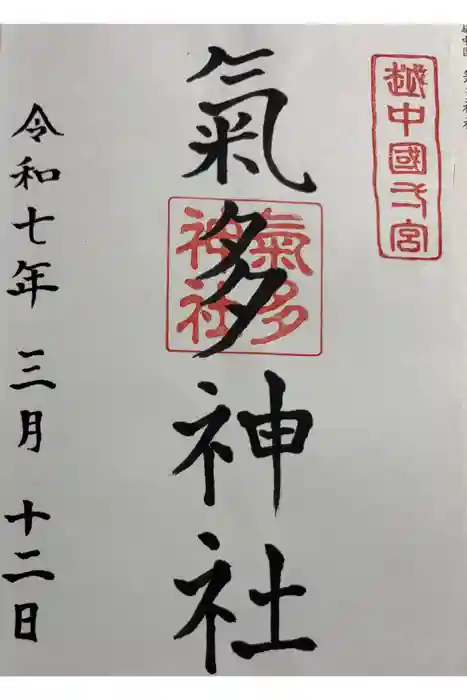 越中國弌宮
氣多神社
氣多
神社
令和七年 三月 十二日